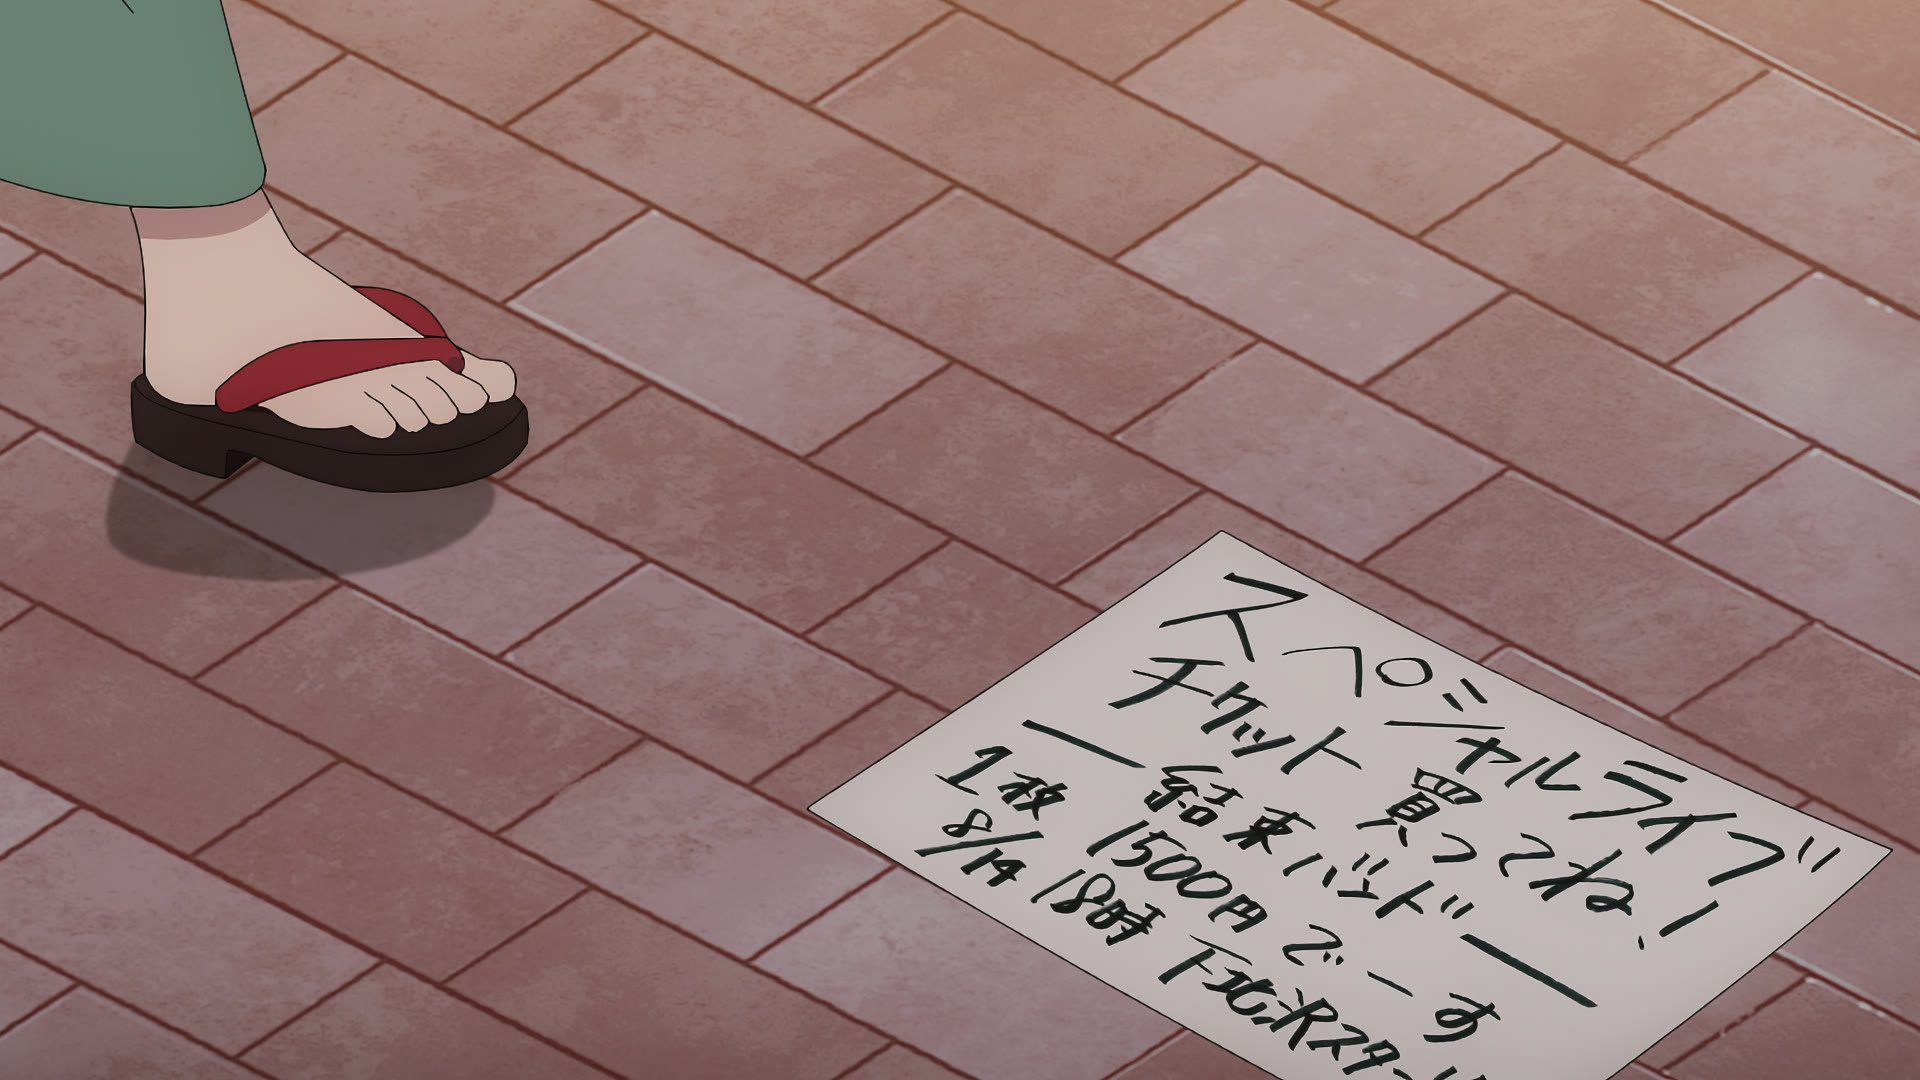 スペシャルライブ
チケット 買ってね!
― 結束バンド ―
1枚 1500円でーす
8/14 18時 下北沢スター